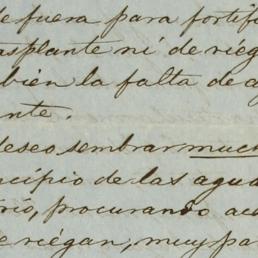 de fuera para fortifi
asplante ni de riega
bién la falta de a
nte.
deseo sembrar much
ncipio de las agua
rio, procurando ac
e riégan, muy pa